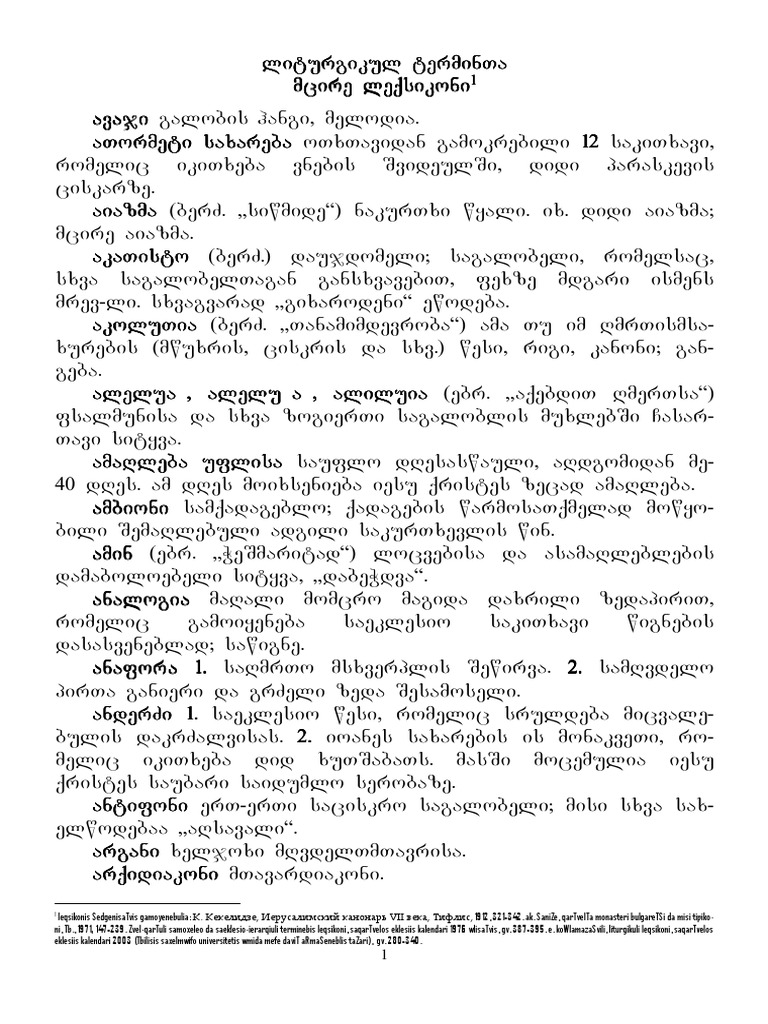 ლიტურგიკულ ტერმინთა
მცირე ლექსიკონი1
ავაჯი გალობის ჰანგი, მელოდია.
ათორმეტი სახარება ოთხთავიდან გამოკრებილი 12 საკითხავი,
რომელიც იკითხება ვნების შვიდეულში, დიდი პარასკევის
ცისკარზე.
აიაზმა (ბერძ. „სიწმიდე“) ნაკურთხი წყალი. იხ. დიდი აიაზმა;
მცირე აიაზმა.
აკათისტო (ბერძ.) დაუჯდომელი; საგალობელი, რომელსაც,
სხვა საგალობელთაგან განსხვავებით, ფეხზე მდგარი ისმენს
მრევ-ლი. სხვაგვარად „გიხაროდენი“ ეწოდება.
აკოლუთია (ბერძ. „თანამიმდევრობა“) ამა თუ იმ ღმრთისმსა-
ხურების (მწუხრის, ცისკრის და სხვ.) წესი, რიგი, კანონი; გან-
გება.
ალელუა , ალელუ ა , ალილუია (ებრ. „აქებდით ღმერთსა“)
ფსალმუნისა და სხვა ზოგიერთი საგალობლის მუხლებში ჩასარ-
თავი სიტყვა.
ამაღლება უფლისა საუფლო დღესასწაული, აღდგომიდან მე-
40 დღეს. ამ დღეს მოიხსენიება იესუ ქრისტეს ზეცად ამაღლება.
ამბიონი სამქადაგებლო; ქადაგების წარმოსათქმელად მოწყო-
ბილი შემაღლებული ადგილი საკურთხევლის წინ.
ამინ (ებრ. „ჭეშმარიტად“) ლოცვებისა და ასამაღლებლების
დამაბოლოებელი სიტყვა, „დაბეჭდვა“.
ანალოგია მაღალი მომცრო მაგიდა დახრილი ზედაპირით,
რომელიც გამოიყენება საეკლესიო საკითხავი წიგნების
დასასვენებლად; საწიგნე.
ანაფორა 1. საღმრთო მსხვერპლის შეწირვა. 2. სამღვდელო
პირთა განიერი და გრძელი ზედა შესამოსელი.
ანდერძი 1. საეკლესიო წესი, რომელიც სრულდება მიცვალე-
ბულის დაკრძალვისას. 2. იოანეს სახარების ის მონაკვეთი, რო-
მელიც იკითხება დიდ ხუთშაბათს. მასში მოცემულია იესუ
ქრისტეს საუბარი საიდუმლო სერობაზე.
ანტიფონი ერთ-ერთი საცისკრო საგალობელი; მისი სხვა სახ-
ელწოდებაა „აღსავალი“.
არგანი ხელჯოხი მღვდელთმთავრისა.
არქიდიაკონი მთავარდიაკონი.
1 leqsikonis SedgenisaTvis gamoyenebulia: К. Кекелидзе, Иерусалимский канонарь VII века, Тифлис, 1912, 321-342. ak. SaniZe, qarTvelTa monasteri bulgareTSi da misi tipiko-
ni, Tb., 1971, 147-239. Zvel-qarTuli samoxeleo da saeklesio-ierarqiuli terminebis leqsikoni, saqarTvelos eklesiis kalendari 1976 wlisaTvis, gv. 387-395. e. koWlamazaSvili, liturgikuli leqsikoni, saqarTvelos
eklesiis kalendari 2003 (Tbilisis saxelmwifo universitetis wmida mefe daviT aRmaSeneblis taZari), gv. 280-340.
1